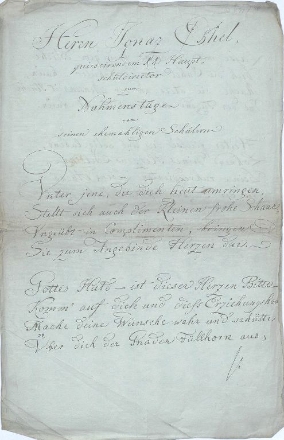 Herrn Ignaz Eshel
Haupt-
zum
Nahmenstage
von
seinen ehemahligen Schülern
Unter jene, die dich heut umringen,
Stellt sich auch der Kleinen frohe Schaar,
in Complimenten, bringen
Sie zum Angebinde Herzen dar.
Gottes Huld – ist dieser Herzen Bitte –
Komm' auf dich und
Mache deine Wünsche wahr und schütte
Über dich der Gnaden Füllhorn aus,